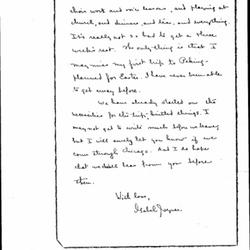 choir work and voice lessons, and playing at
church, and dinners, and teas, and everything.
It's really not so bad to get a three
weeks rest. The only thing is that I
may miss my first trip to Peking -
planned for Easter. I have never been able
to get away before.
We have already started on the
necessities for the trip, knitted things. I
may not get to write much before we leave,
but I will surely let you know if we
come through Chicago. And I do hope
that we shall hear from you before
then.
With love,